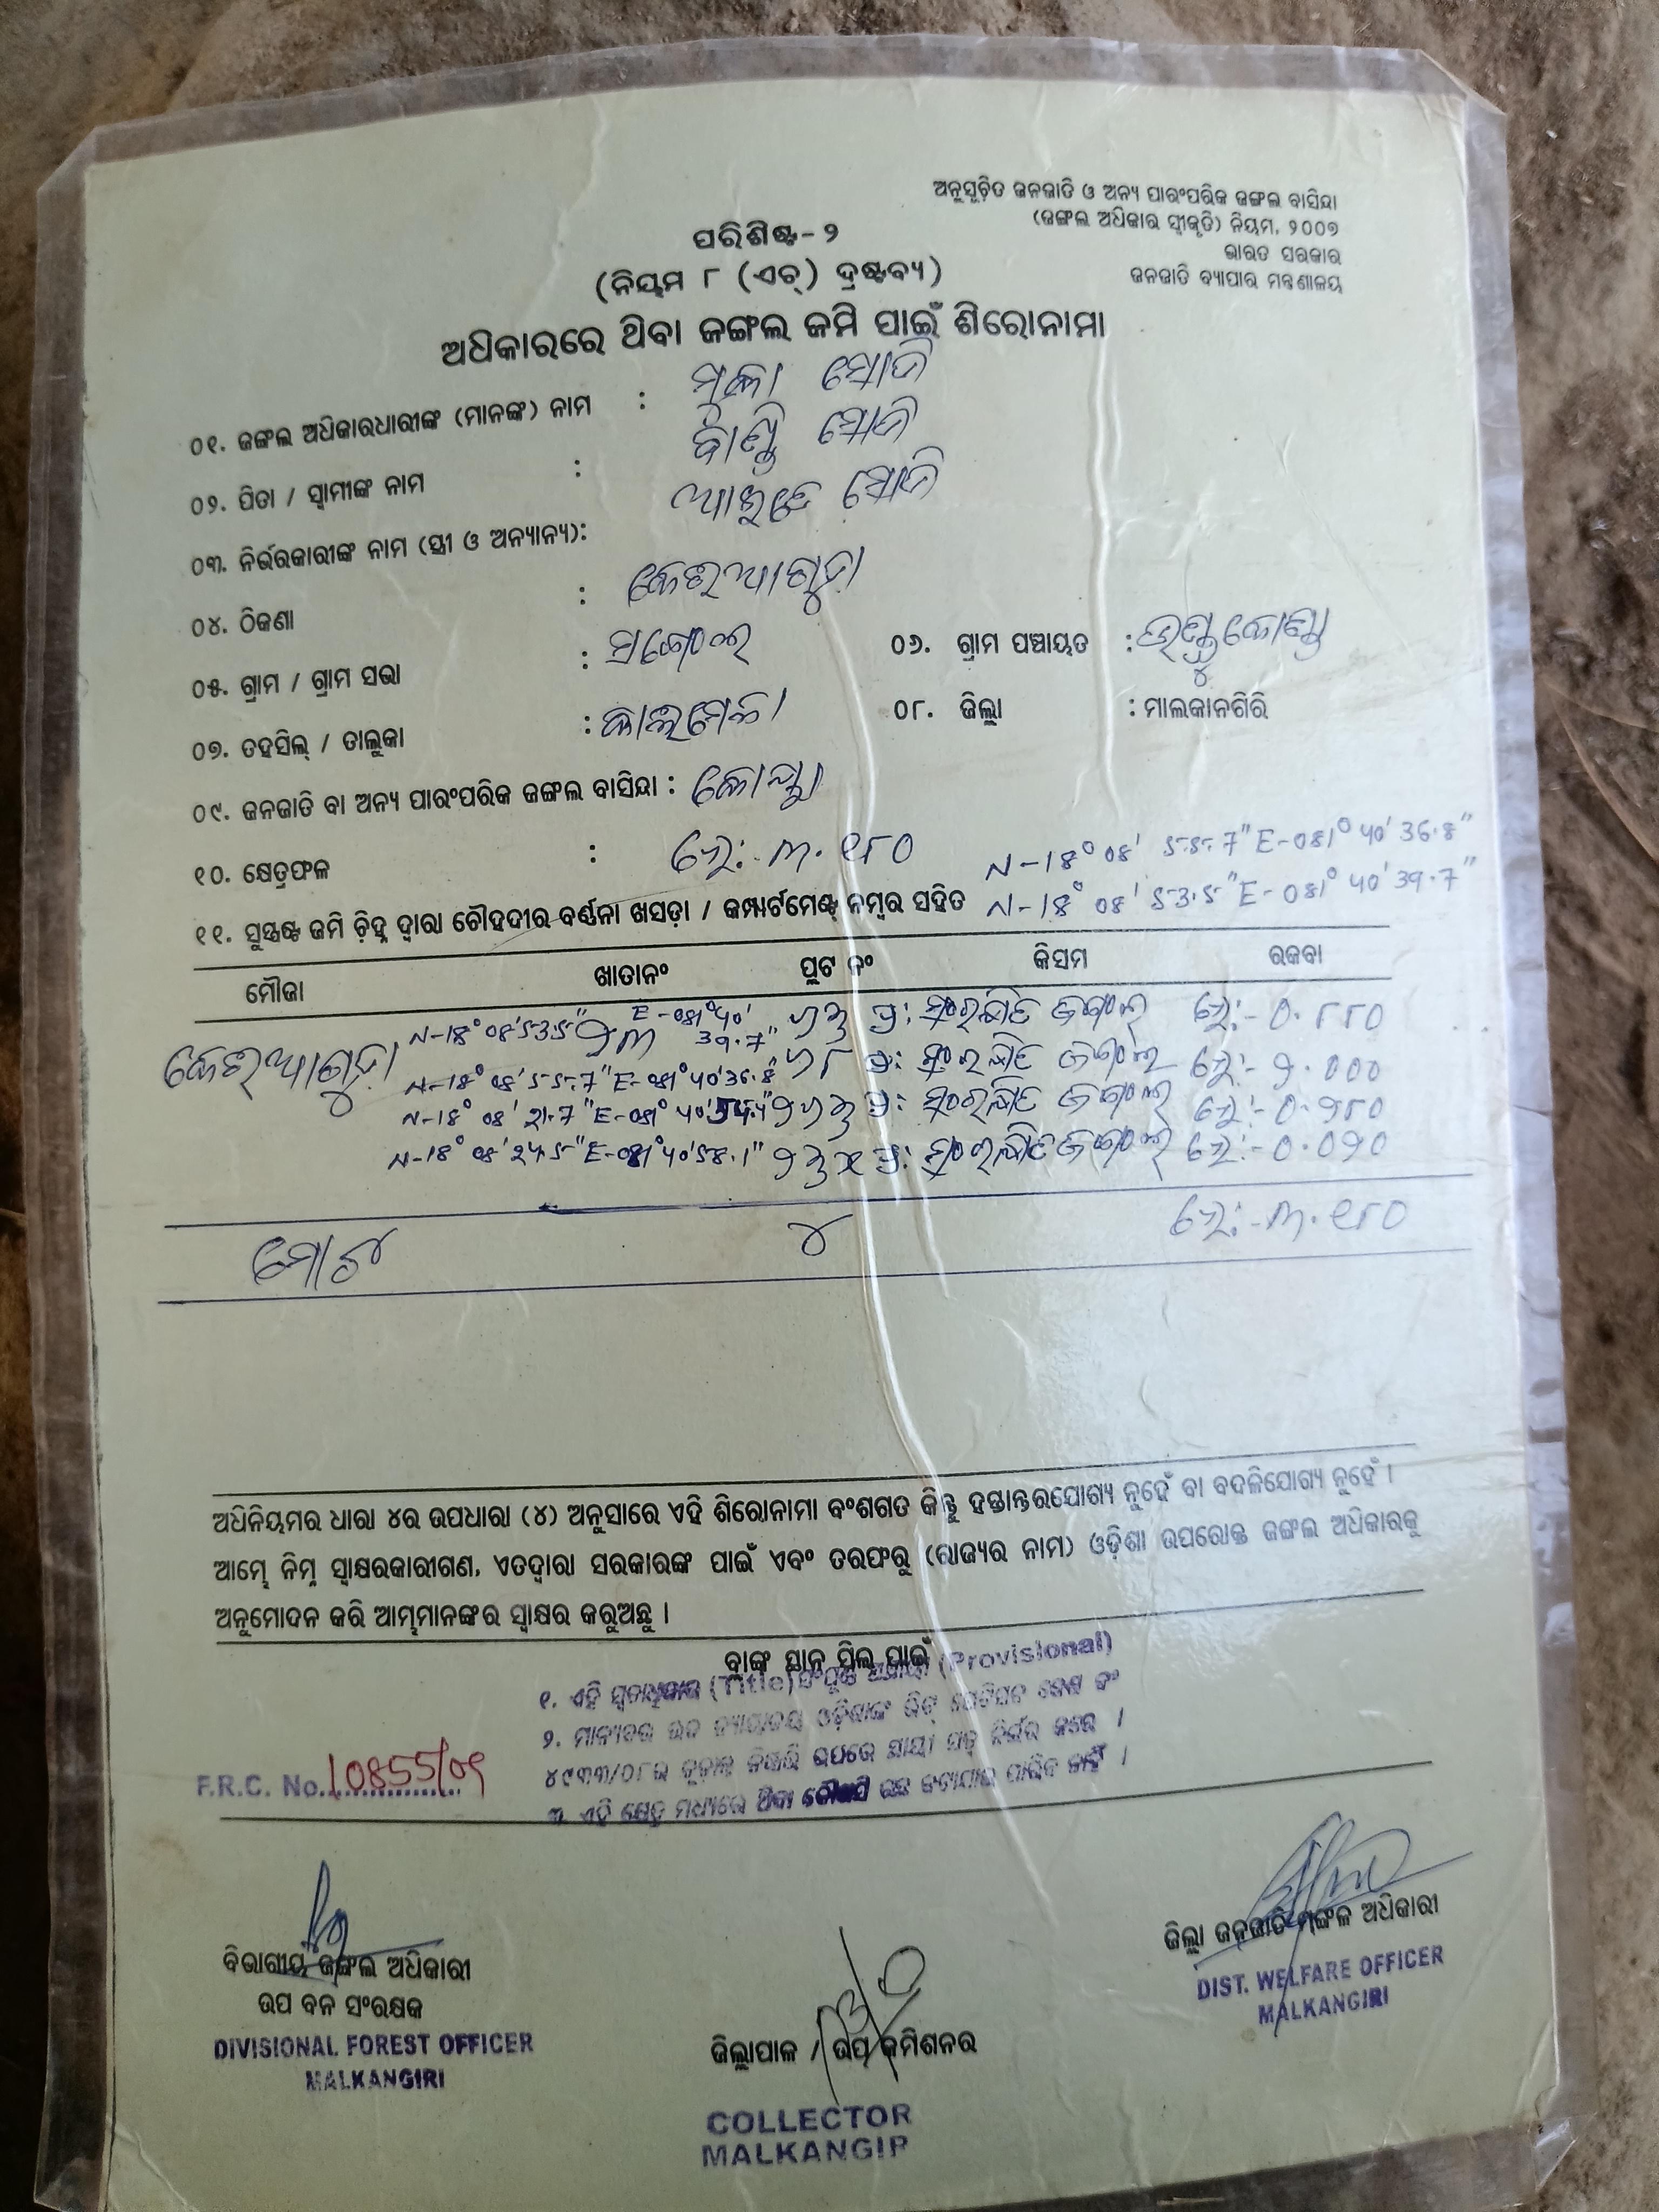 ଅନୁସୂଚିତ ଜନଜାତି ଓ ଅନ୍ୟ ପାରଂପରିକ ଜଙ୍ଗଲ ବାସିନ୍ଦା
(ଜଙ୍ଗଲ ଅଧିକାର ସ୍ୱୀକୃତି) ନିୟମ, ୨୦୦୭
ଭାରତ ସରକାର
ଜନଜାତି ବ୍ୟାପାର ମନ୍ତ୍ରଣାଳୟ
ପରିଶିଷ୍ଟ-୨
(ନିୟମ ୮ (ଏଚ୍) ଦ୍ରଷ୍ଟବ୍ୟ)
ଅଧିକାରରେ ଥିବା ଜଙ୍ଗଲ ଜମି ପାଇଁ ଶିରୋନାମା
୦୧. ଜଙ୍ଗଲ ଅଧିକାରଧାରୀଙ୍କ (ମାନଙ୍କ) ନାମ :
୦୨. ପିତା / ସ୍ୱାମୀଙ୍କ ନାମ :
୦୩. ନିର୍ଭରକାରୀଙ୍କ ନାମ (ସ୍ତ୍ରୀ ଓ ଅନ୍ୟାନ୍ୟ):
୦୪. ଠିକଣା : କେଇଆଗୁଡ଼ା
୦୫. ଗ୍ରାମ / ଗ୍ରାମ ସଭା : ୦୬. ଗ୍ରାମ ପଞ୍ଚାୟତ :
୦୭. ତହସିଲ୍ / ତାଲୁକା : କାଲିମେଳା ୦୮. ଜିଲ୍ଲା : ମାଲକାନଗିରି
୦୯. ଜନଜାତି ବା ଅନ୍ୟ ପାରଂପରିକ ଜଙ୍ଗଲ ବାସିନ୍ଦା : କୋୟା
୧୦. କ୍ଷେତ୍ରଫଳ : ହେ:-୩.୧୮୦ N-18° 08' 55.7" E-081° 40' 36.8"
୧୧. ସୁସ୍ପଷ୍ଟ ଜମି ଚିହ୍ନ ଦ୍ୱାରା ଚୌହଦୀର ବର୍ଣ୍ଣନା ଖସଡ଼ା / କମ୍ପାର୍ଟମେଣ୍ଟ୍ ନମ୍ବର ସହିତ N-18° 08' 53.5" E-081° 40' 39.7"
ମୌଜା ଖାତାନଂ ପ୍ଲଟ ନଂ କିସମ ରକବା
N-18° 08' 53.5" E-081° 40' 39.7" ସଂରକ୍ଷିତ ଜଙ୍ଗଲ ହେ:-୦.୮୮୦
କେଇଆଗୁଡ଼ା N-18° 08' 55.7" E-081° 40' 36.8" ସଂରକ୍ଷିତ ଜଙ୍ଗଲ ହେ:-୨.୦୦୦
N-18° 08' 21.7" E-081° 40' ସଂରକ୍ଷିତ ଜଙ୍ଗଲ ହେ:-୦.୨୮୦
N-18° 08' 24.5" E-081° 40' 58.1" ସଂରକ୍ଷିତ ଜଙ୍ଗଲ ହେ:-୦.୦୨୦
ମୋଟ ୪ ହେ:-୩.୧୮୦
ଅଧିନିୟମର ଧାରା ୪ର ଉପଧାରା (୪) ଅନୁସାରେ ଏହି ଶିରୋନାମା ବଂଶଗତ କିନ୍ତୁ ହସ୍ତାନ୍ତରଯୋଗ୍ୟ ନୁହେଁ ବା ବଦଳିଯୋଗ୍ୟ ନୁହେଁ ।
ଆମ୍ଭେ ନିମ୍ନ ସ୍ୱାକ୍ଷରକାରୀଗଣ, ଏତଦ୍ୱାରା ସରକାରଙ୍କ ପାଇଁ ଏବଂ ତରଫରୁ (ରାଜ୍ୟର ନାମ) ଓଡ଼ିଶା ଉପରୋକ୍ତ ଜଙ୍ଗଲ ଅଧିକାରକୁ
ଅନୁମୋଦନ କରି ଆମ୍ଭମାନଙ୍କର ସ୍ୱାକ୍ଷର କରୁଅଛୁ ।
ବ୍ଲାଙ୍କ ସ୍ଥାନ ସିଲ୍ ପାଇଁ
୧. ଏହି (Title) (Provisional)
୨. ମାନ୍ୟବର ଉଚ୍ଚ ନ୍ୟାୟାଳୟ
୪୯୩୩/୦୮ର ଉପରେ ନିର୍ଭର କରେ ।
୩. ଏହି କ୍ଷେତ୍ର ମଧ୍ୟରେ ଥିବା କୌଣସି ନାହିଁ ।
F.R.C. No. 10855/09
ବିଭାଗୀୟ ଜଙ୍ଗଲ ଅଧିକାରୀ
ଉପ ବନ ସଂରକ୍ଷକ
DIVISIONAL FOREST OFFICER
MALKANGIRI
ଜିଲ୍ଲାପାଳ / ଉପ କମିଶନର
COLLECTOR
MALKANGIR
ଜିଲ୍ଲା ଜନଜାତି ମଙ୍ଗଳ ଅଧିକାରୀ
DIST. WELFARE OFFICER
MALKANGIRI